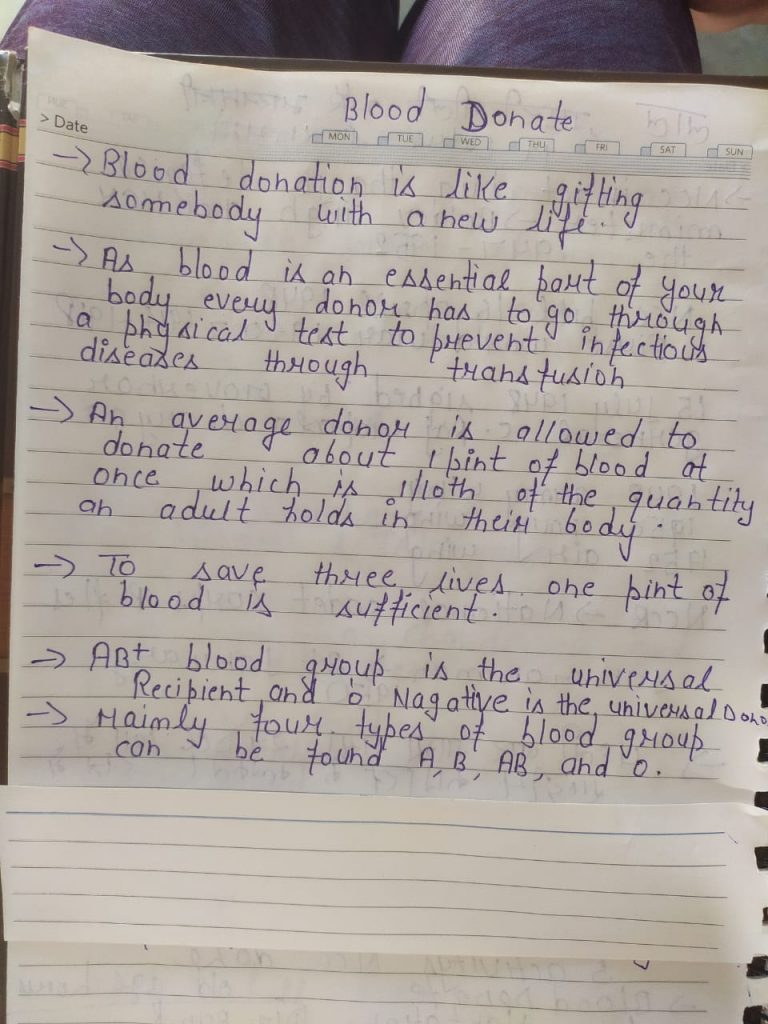 Blood Donate
> Date
MON TUE WED THU FRI SAT SUN
-> Blood donation is like gifting
somebody with a new life.
-> As blood is an essential part of your
body every donor has to go through
a physical test to prevent infectious
diseases through transfusion
-> An average donor is allowed to
donate about 1 pint of blood at
once which is 1/10th of the quantity
an adult holds in their body.
-> To save three lives one pint of
blood is sufficient.
-> AB+ blood group is the universal
Recipient and o Nagative is the universal Dono
-> Mainly four types of blood group
can be found A, B, AB, and O.